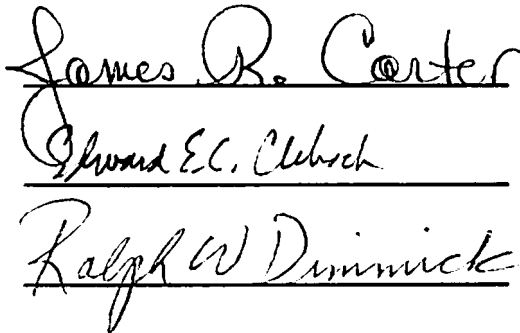 James R. Carter
Edward E.C. Clebsch
Ralph W Dimmick